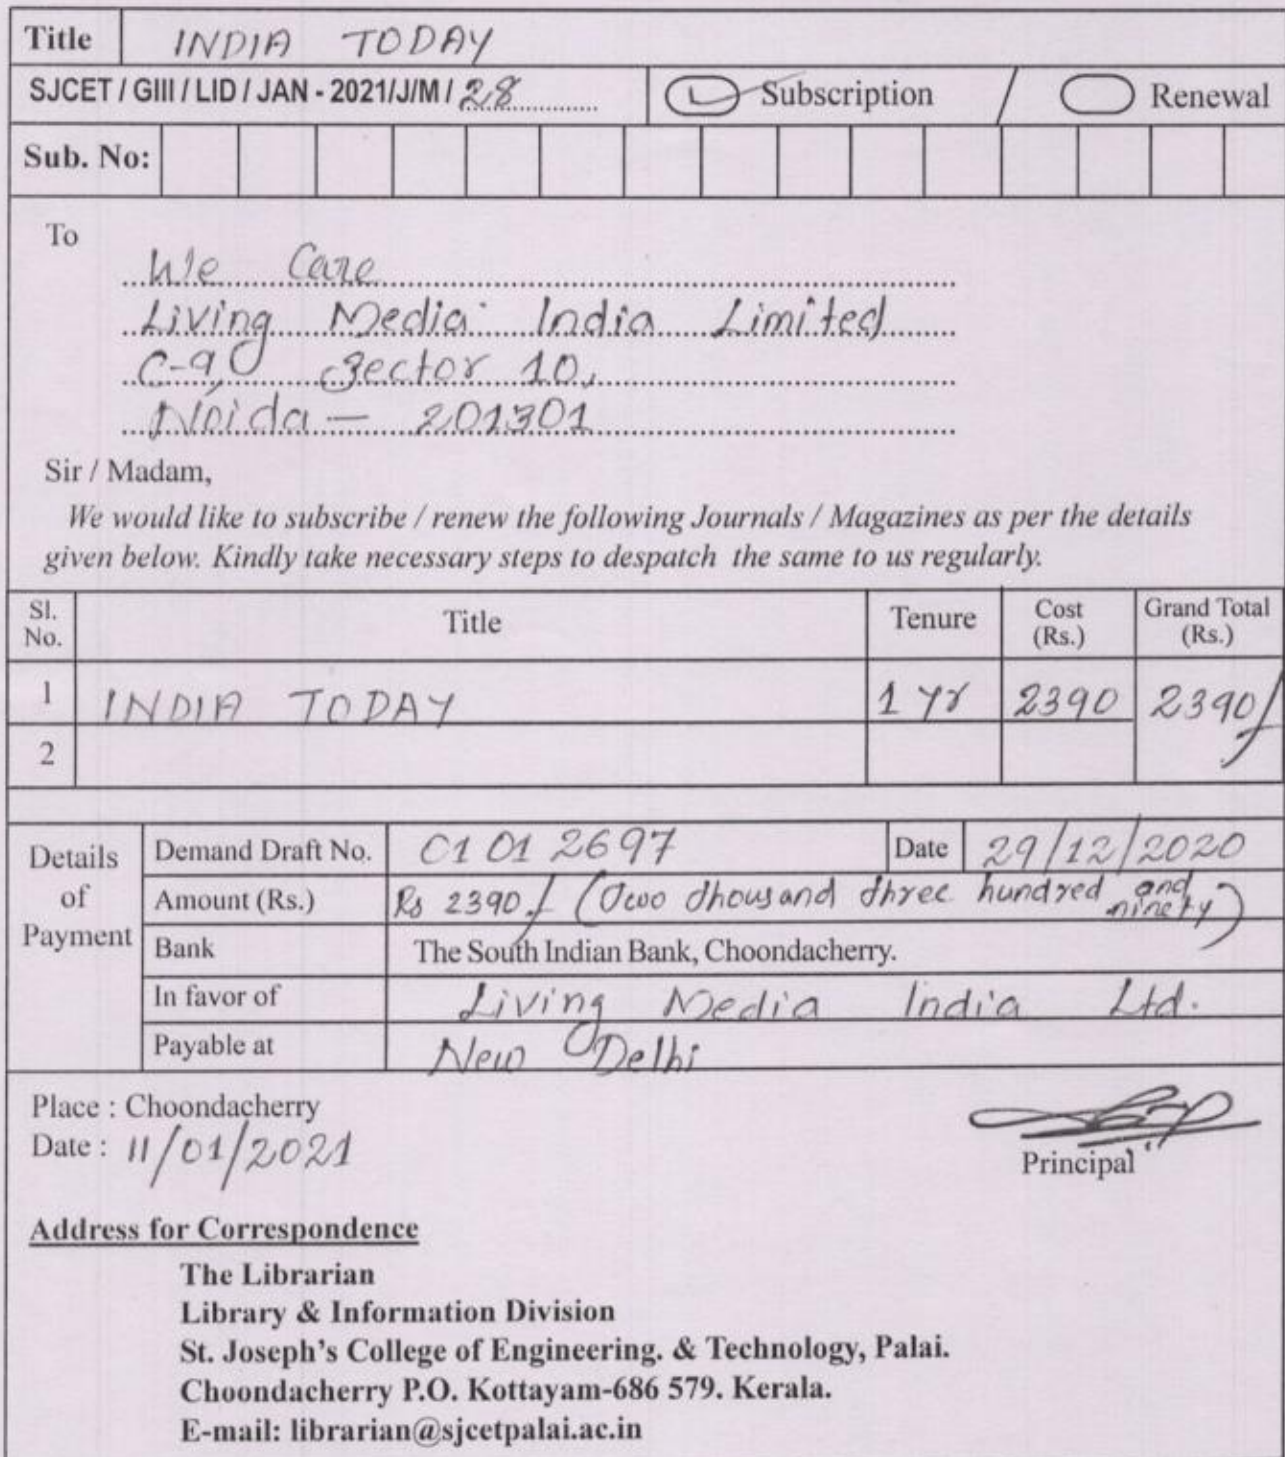 Title INDIA TODAY
SJCET / GIII / LID / JAN - 2021/J/M / 28 Subscription / Renewal
Sub. No:
To
We Care
Living Media India Limited
C-9, Sector 10,
Noida — 201301
Sir / Madam,
We would like to subscribe / renew the following Journals / Magazines as per the details
given below. Kindly take necessary steps to despatch the same to us regularly.
Sl. No. Title Tenure Cost (Rs.) Grand Total (Rs.)
1 INDIA TODAY 1 yr 2390 2390/-
2
Details of Payment
Demand Draft No. 01 01 2697 Date 29/12/2020
Amount (Rs.) Rs 2390/- (Two thousand three hundred and ninety)
Bank The South Indian Bank, Choondacherry.
In favor of Living Media India Ltd.
Payable at New Delhi
Place : Choondacherry
Date : 11/01/2021
Principal
Address for Correspondence
The Librarian
Library & Information Division
St. Joseph's College of Engineering. & Technology, Palai.
Choondacherry P.O. Kottayam-686 579. Kerala.
E-mail: librarian@sjcetpalai.ac.in